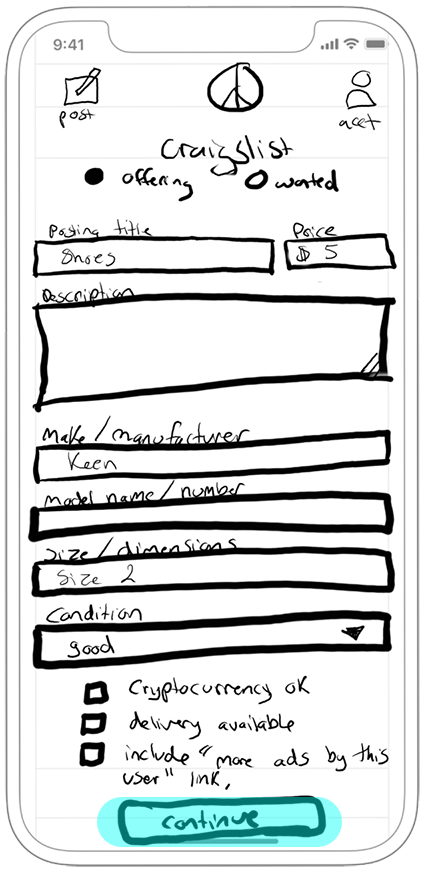 9:41
post
acct
Craigslist
offering wanted
Posting title Price
Shoes $ 5
Description
Make / manufacturer
Keen
Model name / number
Size / dimensions
Size 2
Condition
good
Cryptocurrency ok
delivery available
include "more ads by this
user" link.
continue